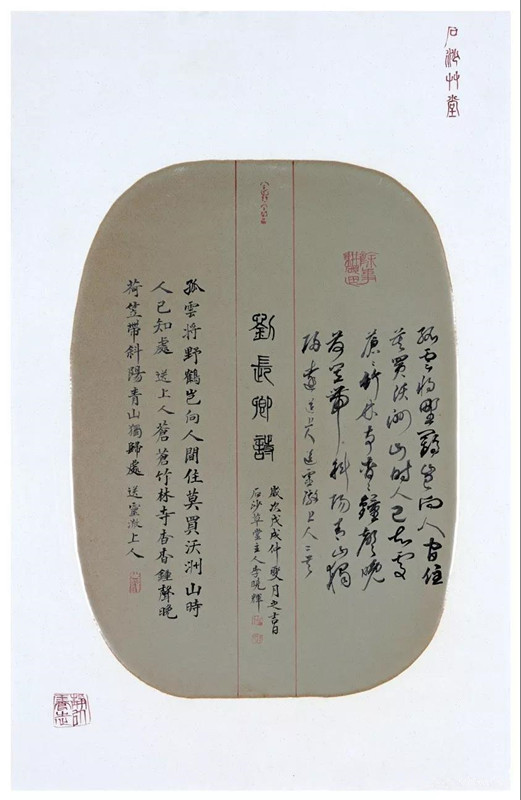 石沙艸堂
孤雲將野鶴豈向人間住
莫買沃洲山時人已知處
蒼〻竹林寺杳〻鐘聲晚
荷笠帶斜陽青山獨
歸遠 送上人送靈澈上人二首
劉長卿詩
歲次戊戌仲月之吉日
石沙草堂主人李曉輝
孤雲將野鶴豈向人間住莫買沃洲山時
人已知處 送上人 蒼蒼竹林寺杳杳鍾聲晚
荷笠帶斜陽青山獨歸處 送靈澈上人
靜以養志